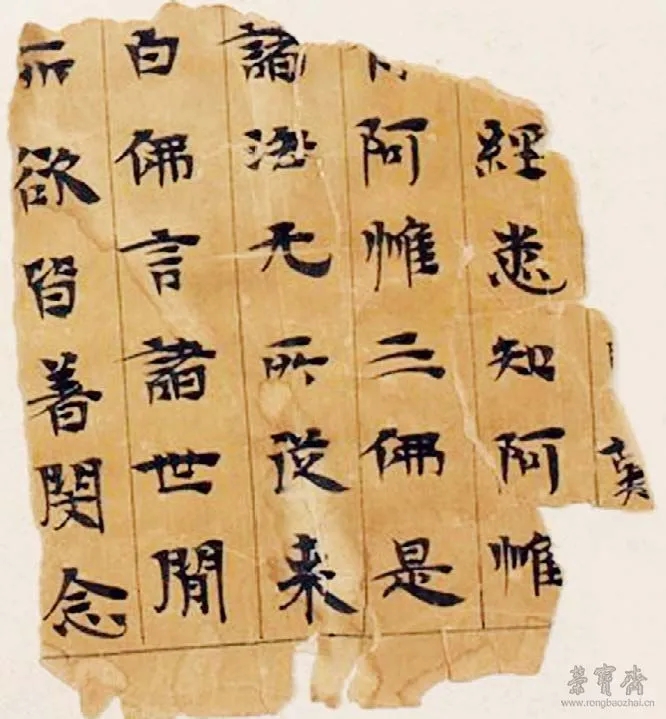 經悉知阿惟
阿惟三佛是
諸法无所從来
白佛言諸世閒
所欲皆著閔念
榮寶齋
www.rongbaozhai.cn